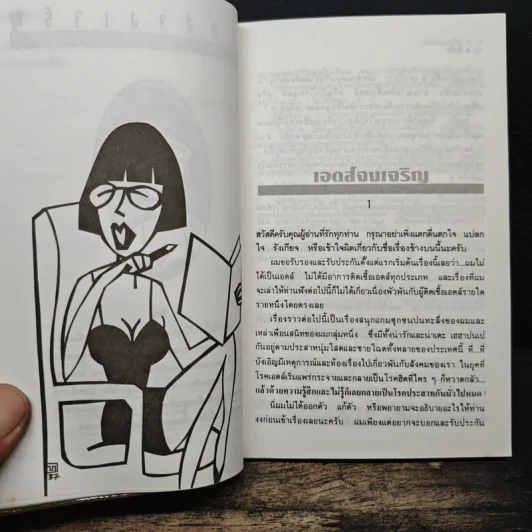 เอดส์จงเจริญ
1
สวัสดีครับคุณผู้อ่านที่รักทุกท่าน กรุณาอย่าเพิ่งแตกตื่นตกใจ แปลก
ใจ รังเกียจ หรือเข้าใจผิดเกี่ยวกับชื่อเรื่องข้างบนนี้นะครับ
ผมขอรับรองและรับประกันตั้งแต่แรกเริ่มต้นเรื่องนี้เลยว่า...ผมไม่
ได้เป็นเอดส์ ไม่ได้มีอาการติดเชื้อเอดส์ทุกประเภท และเรื่องที่ผม
จะเล่าให้ท่านฟังต่อไปนี้ก็ไม่ได้เกี่ยวเนื่องพัวพันกับผู้ติดเชื้อเอดส์รายใด
รายหนึ่งโดยตรงเลย
เรื่องราวต่อไปนี้เป็นเรื่องสนุกแกมซุกซนปนทะลึ่งของผมและ
เหล่าเพื่อนสนิทของผมกลุ่มหนึ่ง ซึ่งมีทั้งน่ารักและน่าเตะ เฮฮาปนเป
กันอยู่ตามประสาหนุ่มโสดและชายโฉดทั้งหลายของประเทศนี้ ที่...ที่
บังเอิญมีเหตุการณ์และท้องเรื่องไปเกี่ยวพันกับสังคมของเรา ในยุคที่
โรคเอดส์เริ่มแพร่กระจายและกลายเป็นโรคฮิตที่ใคร ๆ ก็หวาดกลัว...
แล้วด้วยความรู้สึกและไม่รู้ก็เลยกลายเป็นโรคประสาทกันมั่วไปหมด
นี่ผมไม่ได้ออกตัว แก้ตัว หรือพยายามจะอธิบายอะไรให้ท่าน
งงก่อนเข้าเรื่องเลยนะครับ ผมเพียงแต่อยากจะบอกและรับประกัน
37